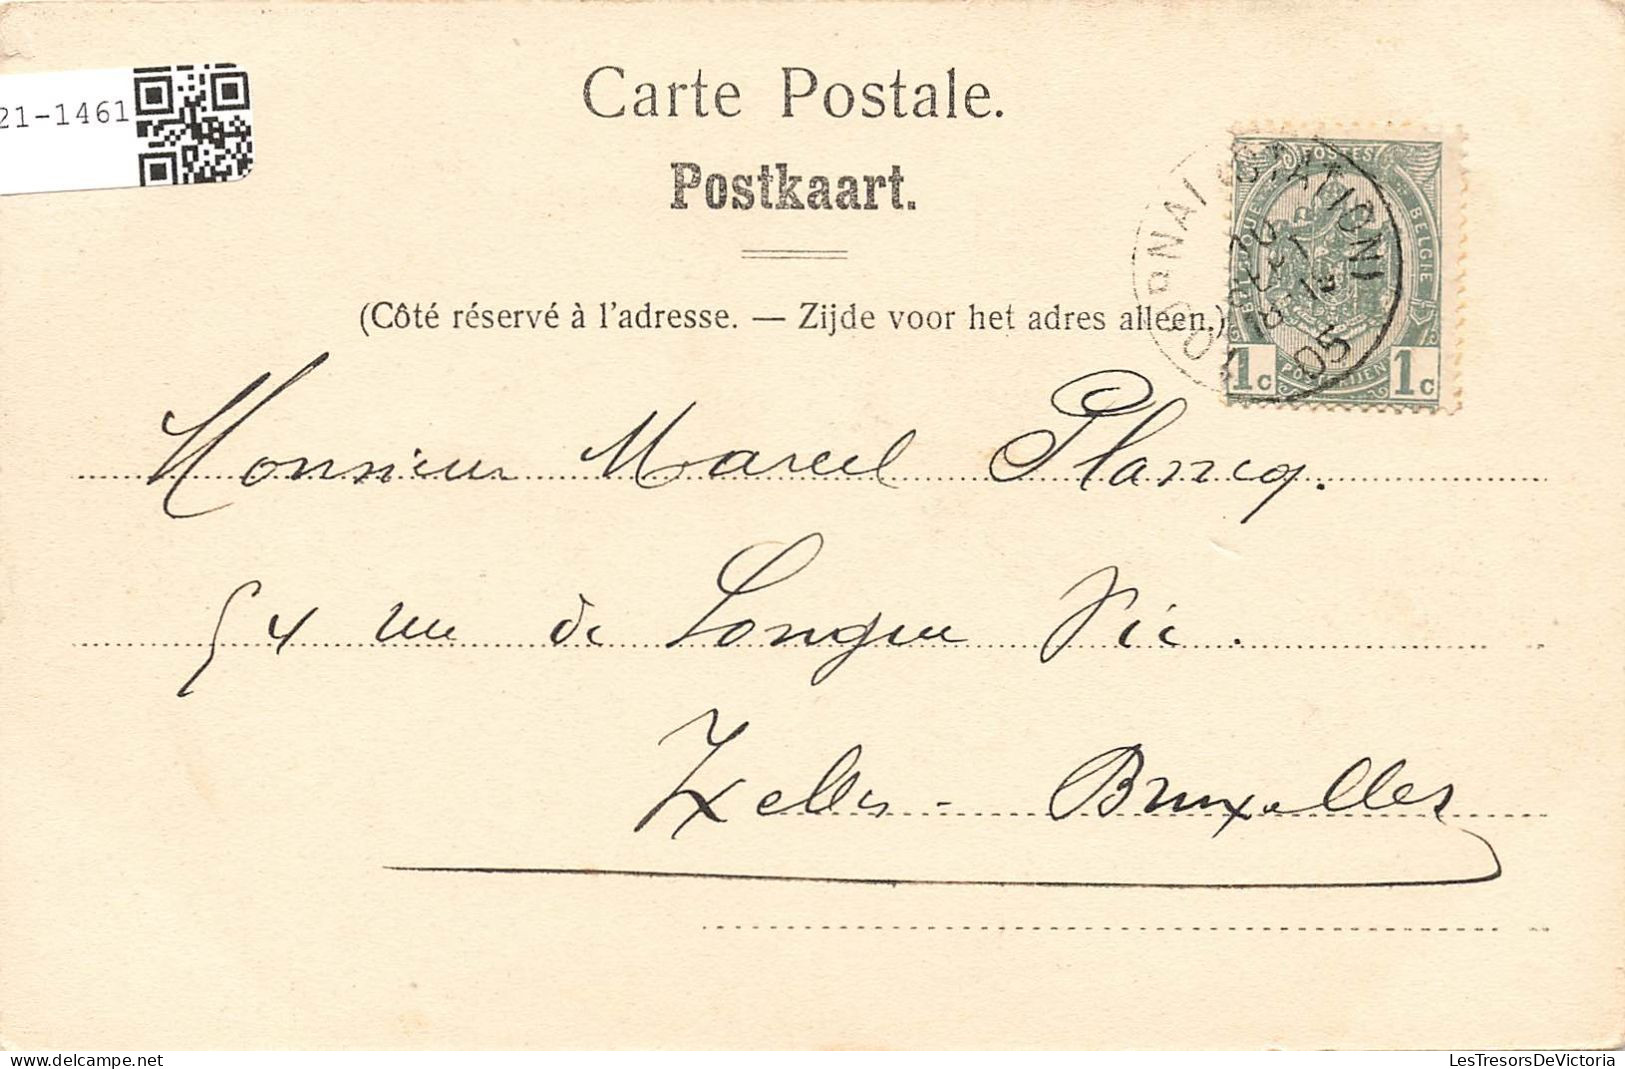 21-1461
Carte Postale.
Postkaart.
(Côté réservé à l'adresse. — Zijde voor het adres alleen.)
TOURNAI (STATION)
05
POSTES
BELGIQUE
BELGIE
POSTERIJEN
1c 1c
Monsieur Marcel Plancq.
54 rue de Longue Vie.
Ixelles - Bruxelles
delcampe.net
LesTresorsDeVictoria